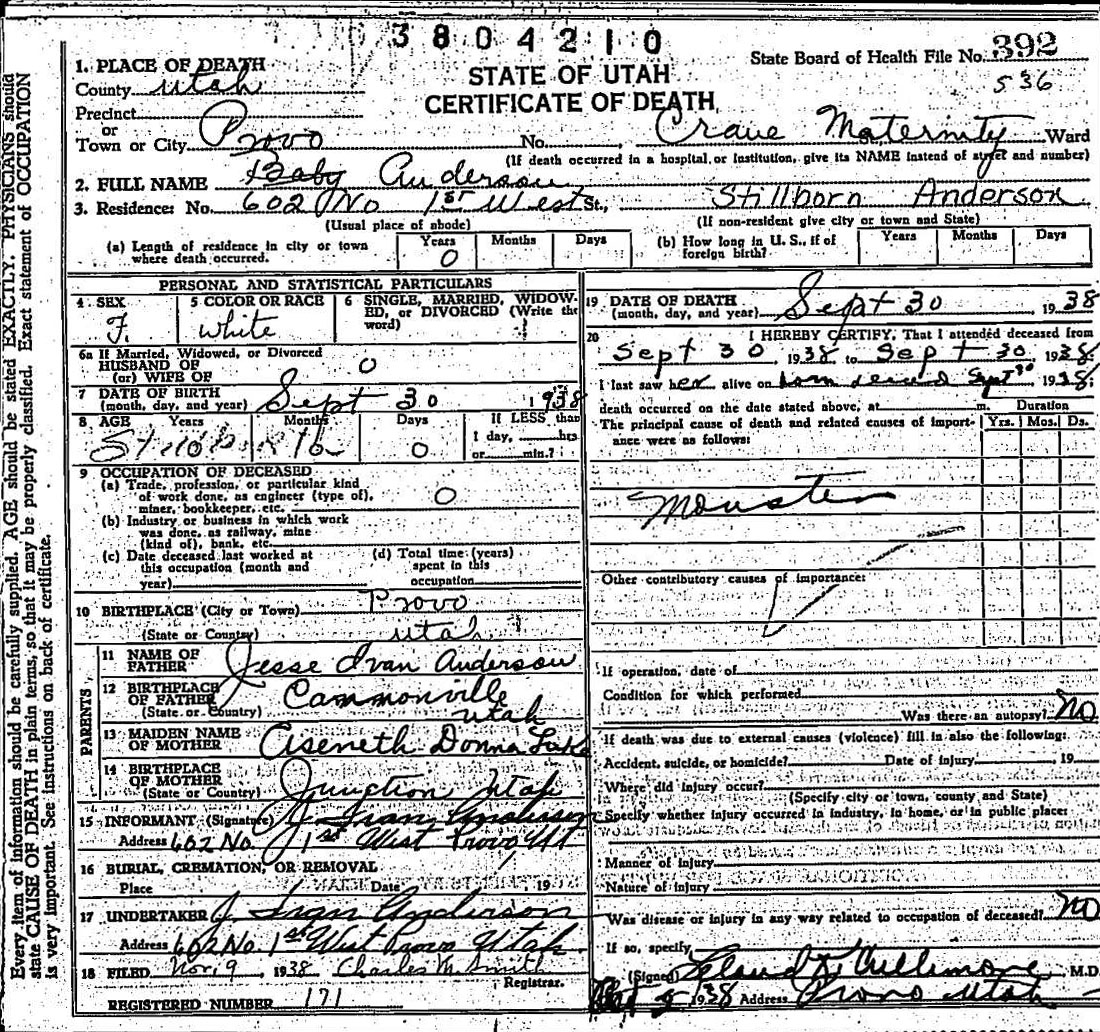 3804210
State Board of Health File No. 392
536
STATE OF UTAH
CERTIFICATE OF DEATH
1. PLACE OF DEATH
County Utah
Precinct
or
Town or City Provo No. Crane Maternity St., Ward
(If death occurred in a hospital or institution, give its NAME instead of street and number)
2. FULL NAME Baby Anderson Stillborn Anderson
3. Residence: No. 602 No 1st West St.,
(Usual place of abode) (If non-resident give city or town and State)
(a) Length of residence in city or town where death occurred. Years 0 Months Days
(b) How long in U. S., if of foreign birth? Years Months Days
PERSONAL AND STATISTICAL PARTICULARS
4 SEX F.
5 COLOR OR RACE White
6 SINGLE, MARRIED, WIDOWED, or DIVORCED (Write the word)
6a If Married, Widowed, or Divorced
HUSBAND OF 0
(or) WIFE OF
7 DATE OF BIRTH
(month, day, and year) Sept 30 1938
8 AGE Years Months Days If LESS than
1 day, hrs
or min.?
Stillbirth 0
9 OCCUPATION OF DECEASED
(a) Trade, profession, or particular kind
of work done, as engineer (type of), 0
miner, bookkeeper, etc.
(b) Industry or business in which work
was done, as railway, mine
(kind of), bank, etc.
(c) Date deceased last worked at
this occupation (month and
year)
(d) Total time (years)
spent in this
occupation
10 BIRTHPLACE (City or Town) Provo
(State or Country) Utah
PARENTS
11 NAME OF
FATHER Jesse Ivan Anderson
12 BIRTHPLACE
OF FATHER Cammonville
(State or Country) Utah
13 MAIDEN NAME
OF MOTHER Aseneth Donna Luke
14 BIRTHPLACE
OF MOTHER
(State or Country) Junction Utah
15 INFORMANT (Signature) J. Ivan Anderson
Address 602 No. 1st West Provo Ut
16 BURIAL, CREMATION, OR REMOVAL
Place Date 19
17 UNDERTAKER J. Ivan Anderson
Address 602 No. 1st West Provo Utah
18 FILED Nov. 9 1938 Charles M. Smith
Registrar.
REGISTERED NUMBER 171
19 DATE OF DEATH
(month, day, and year) Sept 30 1938
20 I HEREBY CERTIFY, That I attended deceased from
Sept 30 1938 to Sept 30, 1938.
I last saw her alive on born Sept 30 1938;
death occurred on the date stated above, at m. Duration
The principal cause of death and related causes of importance were as follows: Yrs. Mos. Ds.
Monster
Other contributory causes of importance:
If operation, date of
Condition for which performed
Was there an autopsy? No
If death was due to external causes (violence) fill in also the following:
Accident, suicide, or homicide? Date of injury 19
Where did injury occur?
(Specify city or town, county and State)
Specify whether injury occurred in industry, in home, or in public place:
Manner of injury
Nature of injury
Was disease or injury in any way related to occupation of deceased? No
If so, specify
(Signed) Cullimore M.D.
1938 Address Provo Utah
Every item of information should be carefully supplied. AGE should be stated EXACTLY. PHYSICIANS should
state CAUSE OF DEATH in plain terms, so that it may be properly classified. Exact statement of OCCUPATION
is very important. See instructions on back of certificate.